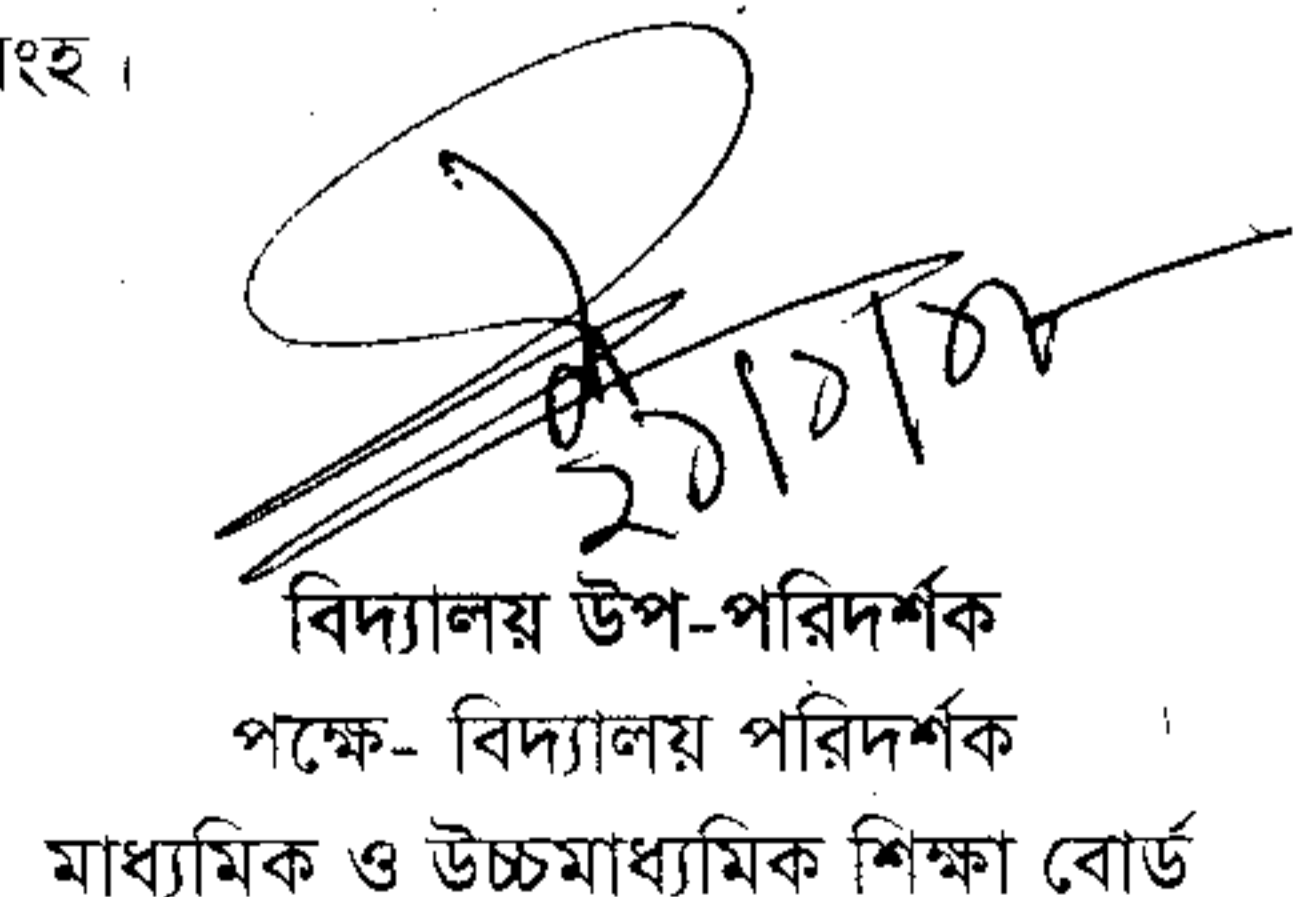 ংহ।
২১/১/০৮
বিদ্যালয় উপ-পরিদর্শক
পক্ষে- বিদ্যালয় পরিদর্শক
মাধ্যমিক ও উচ্চমাধ্যমিক শিক্ষা বোর্ড